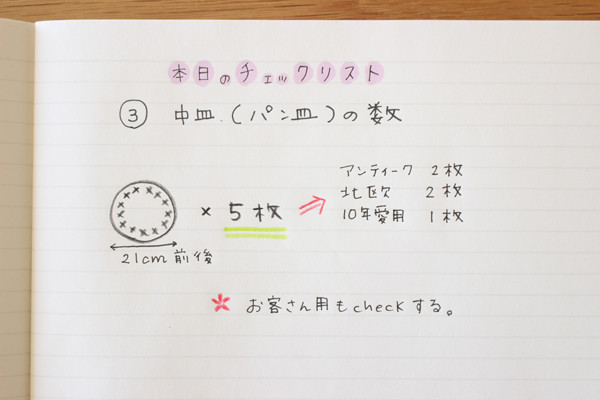 本日のチェックリスト
③ 中皿.(パン皿)の数
アンティーク 2枚
× 5枚 ⇒ 北欧 2枚
10年愛用 1枚
21cm前後
* お客さん用もcheckする。